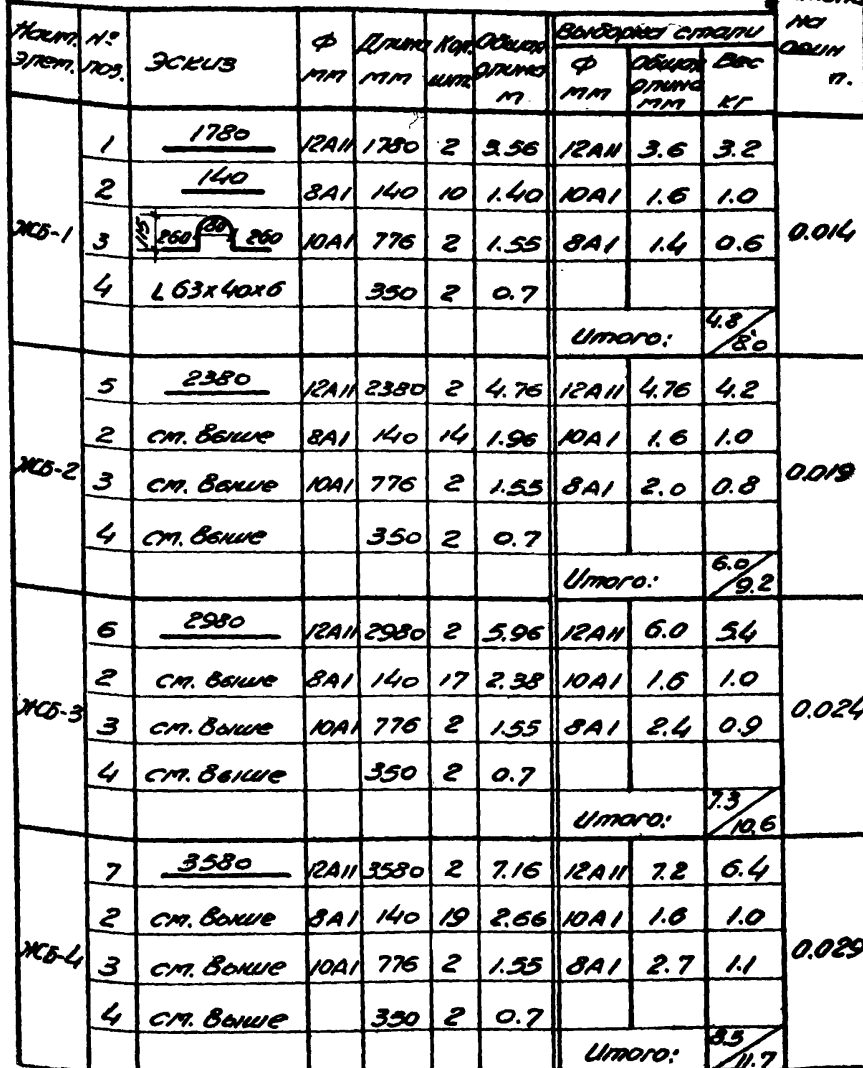 Наим. элем. № поз. Эскиз Ф мм Длина мм Кол. шт. Общая длина м Выборка стали на один п.
Ф мм Общая длина мм Вес кг
ЖБ-1 1 1780 12АII 1780 2 3.56 12АII 3.6 3.2 0.014
2 140 8АI 140 10 1.40 10АI 1.6 1.0
3 115 260 80 260 10АI 776 2 1.55 8АI 1.4 0.6
4 L 63х40х6 350 2 0.7
Итого: 4.8/8.0
ЖБ-2 5 2380 12АII 2380 2 4.76 12АII 4.76 4.2 0.019
2 см. выше 8АI 140 14 1.96 10АI 1.6 1.0
3 см. выше 10АI 776 2 1.55 8АI 2.0 0.8
4 см. выше 350 2 0.7
Итого: 6.0/9.2
ЖБ-3 6 2980 12АII 2980 2 5.96 12АII 6.0 5.4 0.024
2 см. выше 8АI 140 17 2.38 10АI 1.6 1.0
3 см. выше 10АI 776 2 1.55 8АI 2.4 0.9
4 см. выше 350 2 0.7
Итого: 7.3/10.6
ЖБ-4 7 3580 12АII 3580 2 7.16 12АII 7.2 6.4 0.029
2 см. выше 8АI 140 19 2.66 10АI 1.6 1.0
3 см. выше 10АI 776 2 1.55 8АI 2.7 1.1
4 см. выше 350 2 0.7
Итого: 8.5/11.7